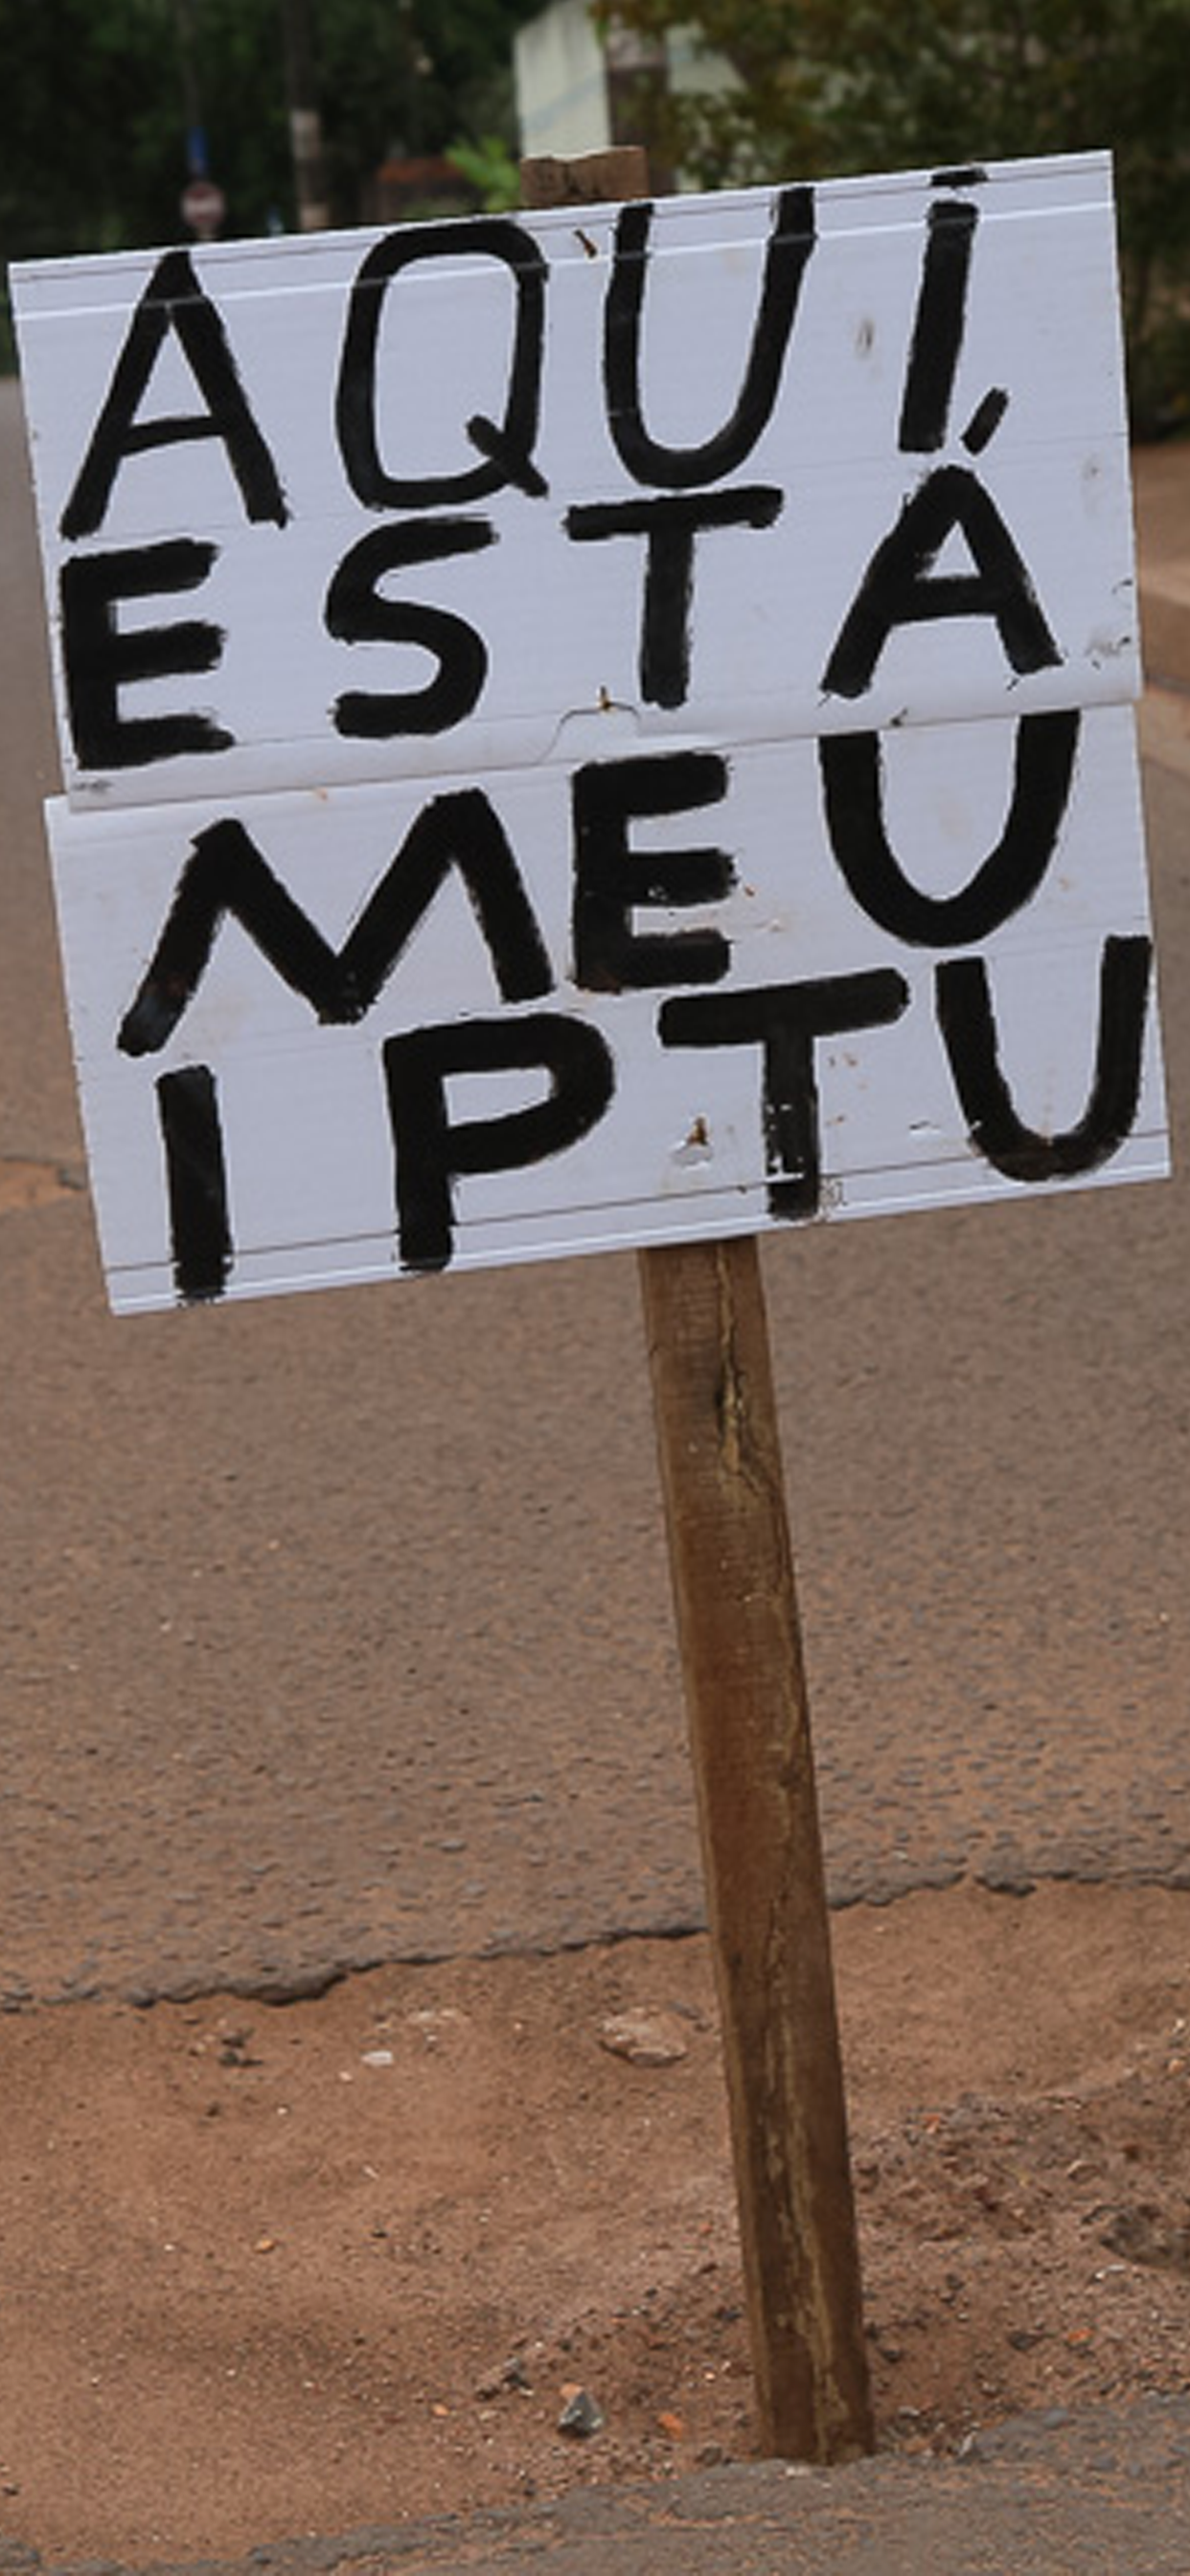 AQUI,
ESTÁ
MEU
IPTU